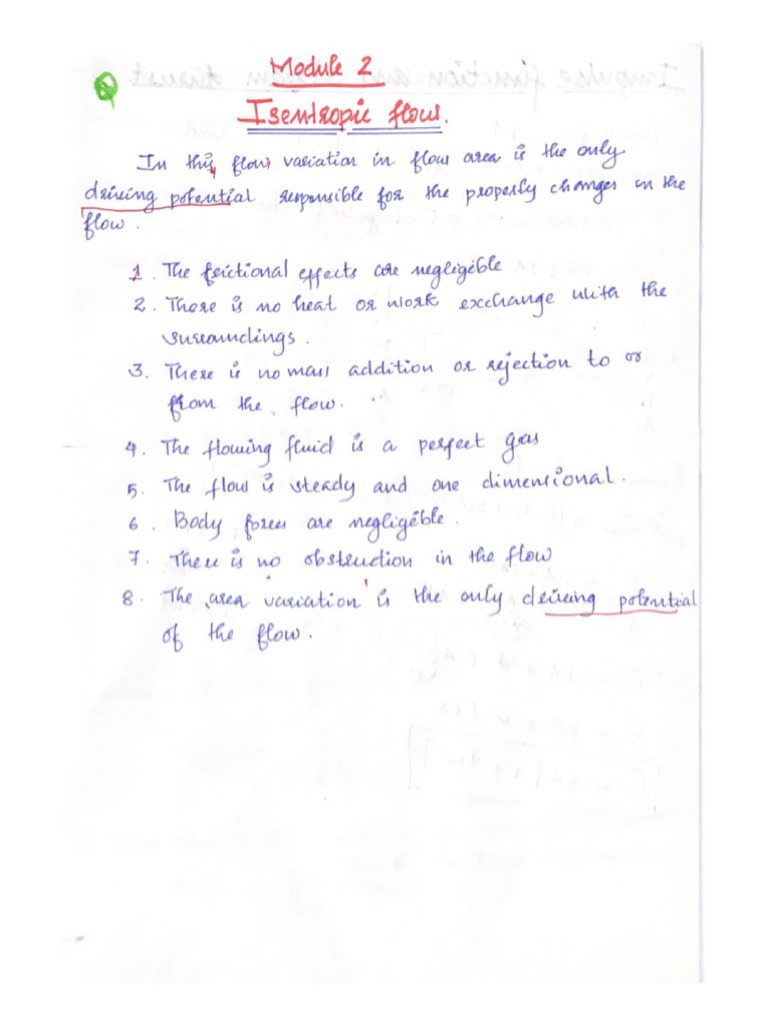 Module 2
Isentropic flow.
In this flow variation in flow area is the only
driving potential responsible for the property changes in the
flow.
1. The frictional effects are negligible
2. There is no heat or work exchange with the
surroundings.
3. There is no mass addition or rejection to or
from the flow.
4. The flowing fluid is a perfect gas
5. The flow is steady and one dimensional.
6. Body forces are negligible.
7. There is no obstruction in the flow
8. The area variation is the only driving potential
of the flow.